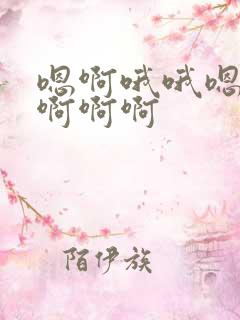 嗯啊哦哦嗯
啊啊啊
陌伊族